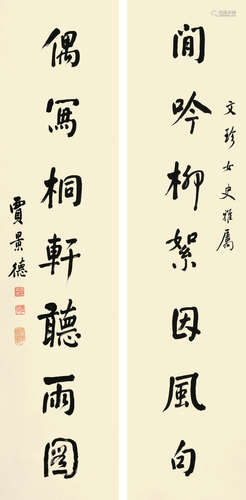 文珍女史雅屬
閒吟柳絮因風句
偶寫桐軒聽雨圖
賈景德